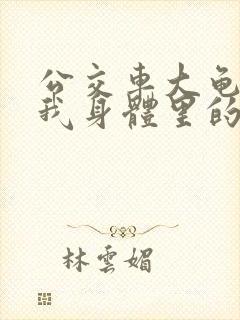 公交車大龟
我身體里的
林雲媚